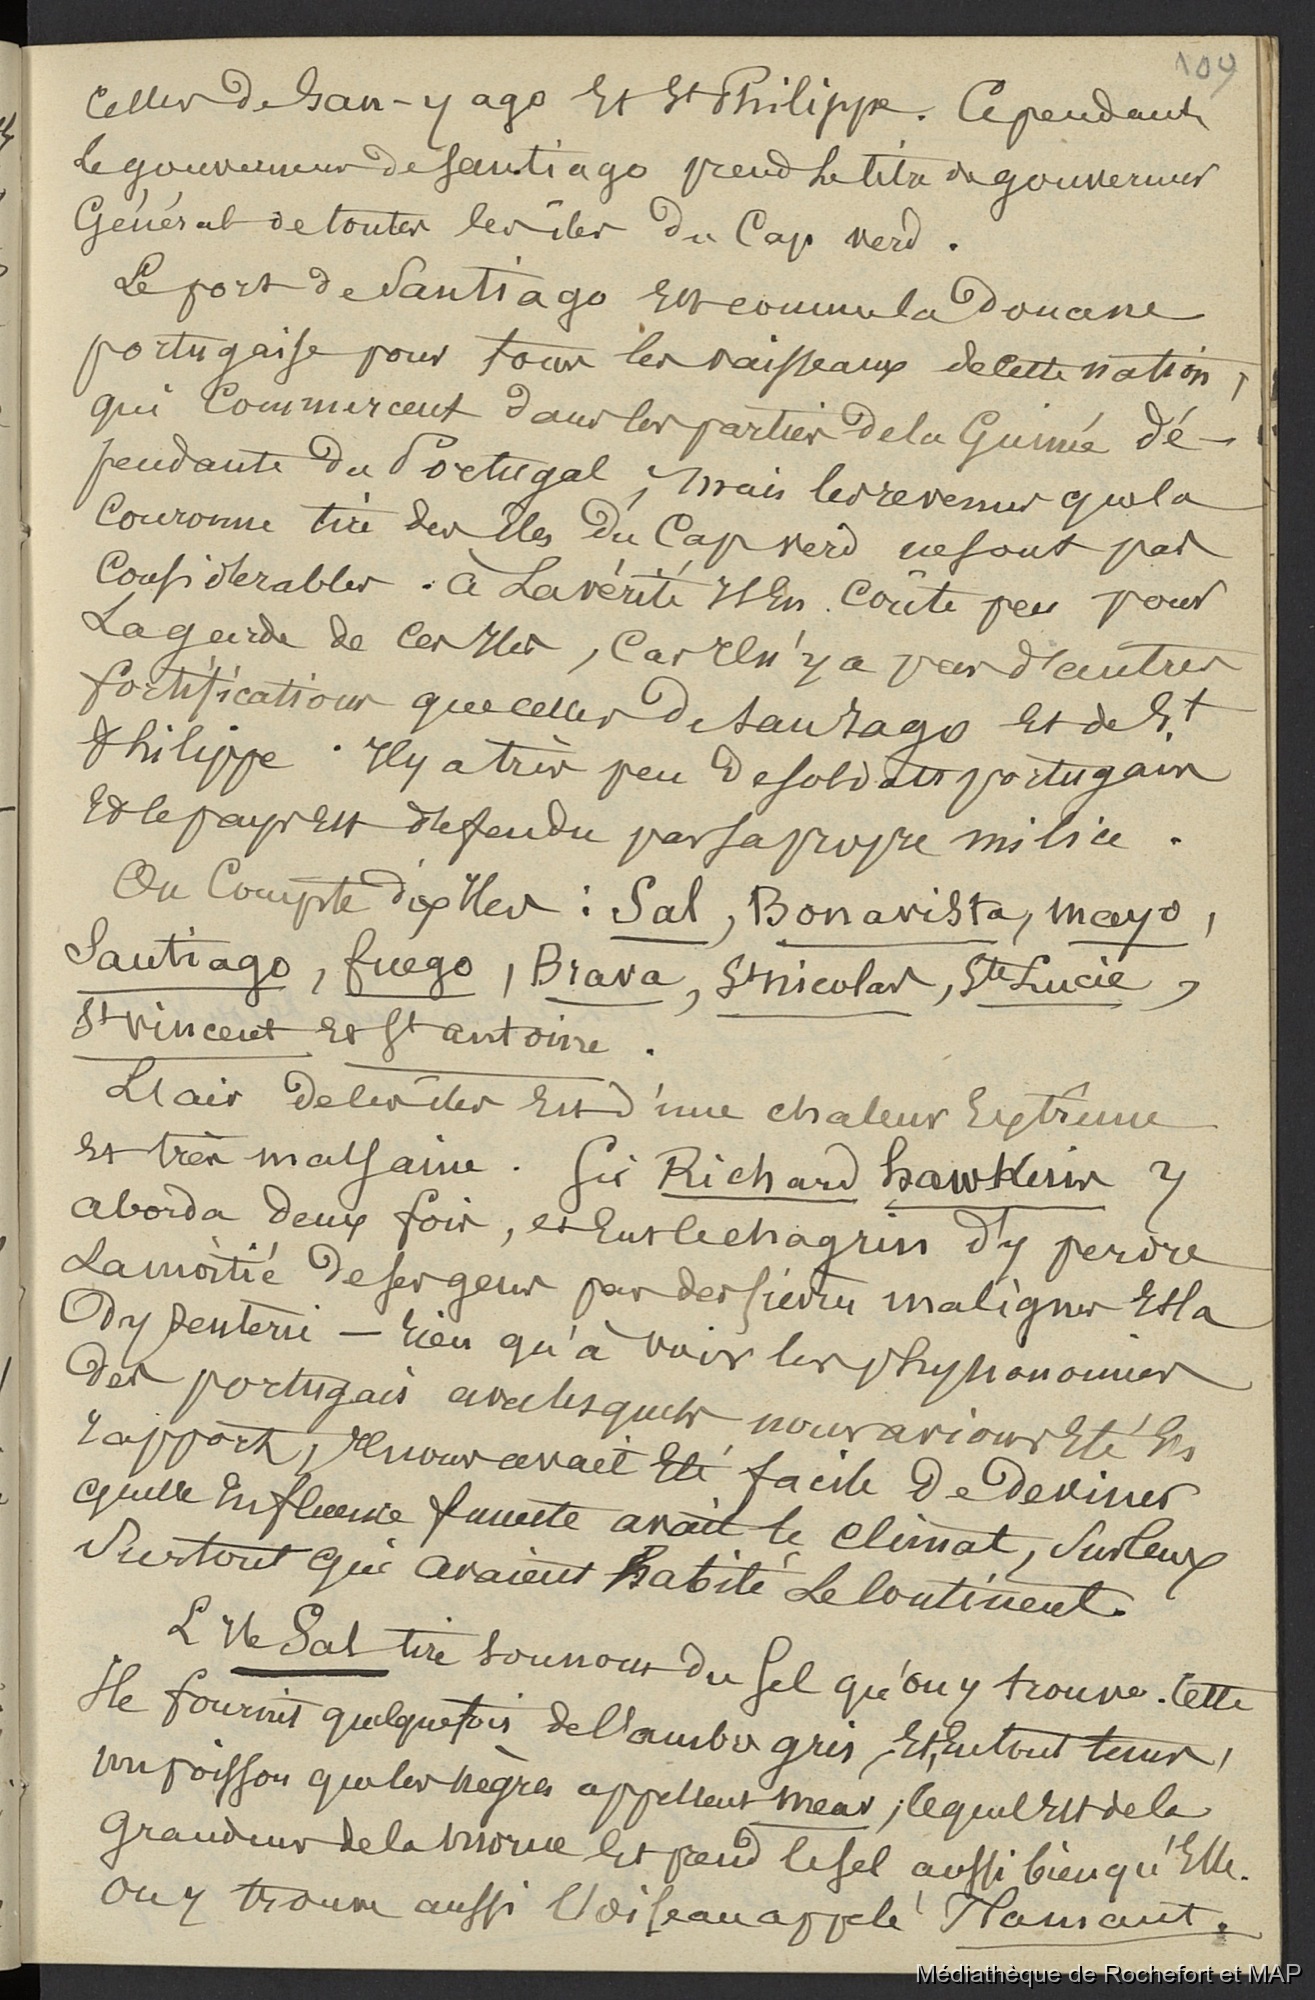 109
celles de San-yago et St Philippe. Cependant
le gouverneur de Santiago prend le titre de gouverneur
Général de toutes les îles du Cap verd.
Le port de Santiago est comme la Douane
portugaise pour tous les vaisseaux de cette nation,
qui commercent dans les parties de la Guinée dé-
pendante du Portugal ; mais les revenus que la
Couronne tire des Iles du Cap verd ne sont pas
Considérables. à La vérité Il En coûte peu pour
La garde de Ces Iles, Car Il n'y a pas d'autres
fortifications que celles de San Yago et de St
Philippe. Il y a très peu de soldats portugais
Et le pays Est défendu par sa propre milice.
On Compte dix Iles : Sal, Bonavista, mayo,
Santiago, fuego, Brava, St nicolas, Ste Lucie,
St vincent et St antoine.
L'air de les îles Est d'une chaleur Extrême
et très malsaine. Sir Richard hawkins y
aborda deux fois, et Eut le chagrin d'y perdre
La moitié de ses gens par des fièvres malignes Et la
Dyssenterie — Rien qu'à voir les physionomies
Des portugais avec lesquels nous avions Eté En
rapport, Il nous avait Eté facile De Deviner
quelle Influence funeste avait le climat, Sur Ceux
Surtout qui avaient habité Le Continent.
L'Ile Sal tire son nom du Sel qu'on y trouve. Cette
Ile fournit quelquefois de l'ambre gris, Et, En tout tems,
un poisson que les nègres appellent mear, lequel Est de la
Grandeur de la morue Et prend le sel aussi bien qu'Elle.
On y trouve aussi l'oiseau appelé Flamant.
Médiathèque de Rochefort et MAP